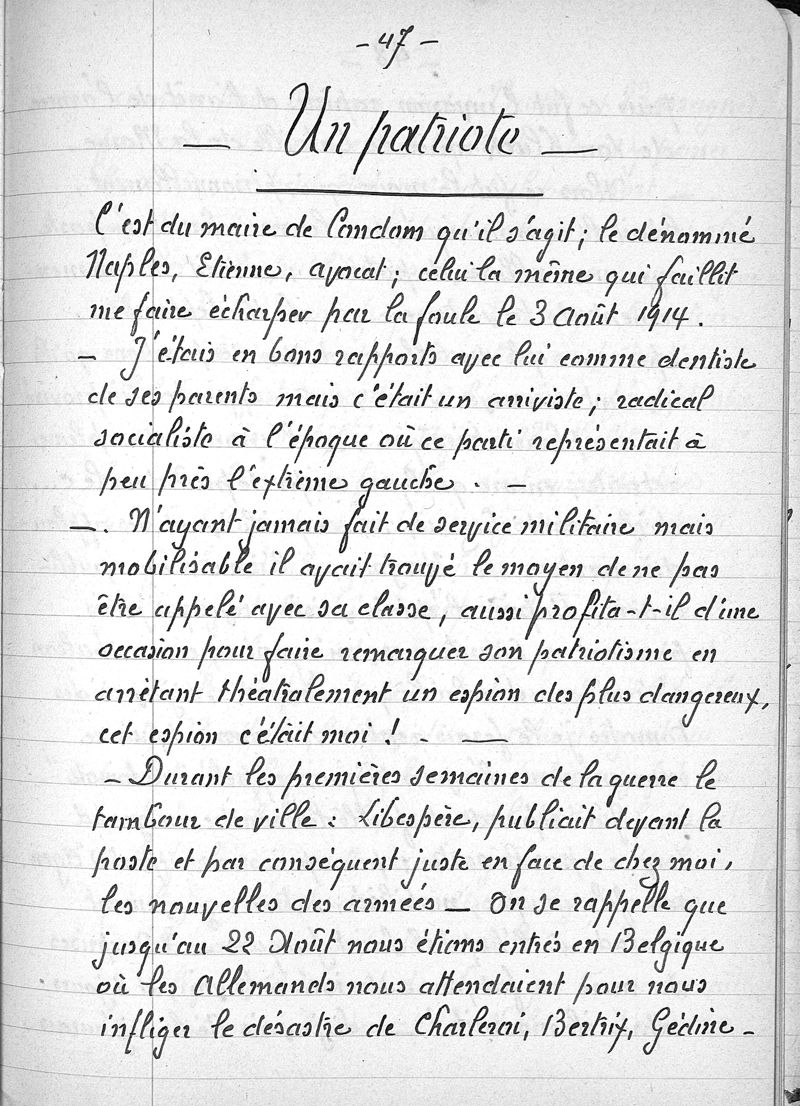 - 47 -
— Un patriote —
C'est du maire de Condom qu'il s'agit ; le dénommé
Naples, Etienne, avocat ; celui la même qui faillit
me faire écharper par la foule le 3 Août 1914.
— J'étais en bons rapports avec lui comme dentiste
de ses parents mais c'était un arriviste ; radical
socialiste à l'époque où ce parti représentait à
peu près l'extrème gauche . —
—. N'ayant jamais fait de service militaire mais
mobilisable il avait trouvé le moyen de ne pas
être appelé avec sa classe, aussi profita-t-il d'une
occasion pour faire remarquer son patriotisme en
arrêtant théatralement un espion des plus dangereux,
cet espion c'était moi ! . —
— Durant les premières semaines de la guerre le
tambour de ville : Libespère, publiait devant la
poste et par conséquent juste en face de chez moi,
les nouvelles des armées — On se rappelle que
jusqu'au 22 Août nous étions entrés en Belgique
où les Allemands nous attendaient pour nous
infliger le désastre de Charleroi, Bertrix, Gédine -